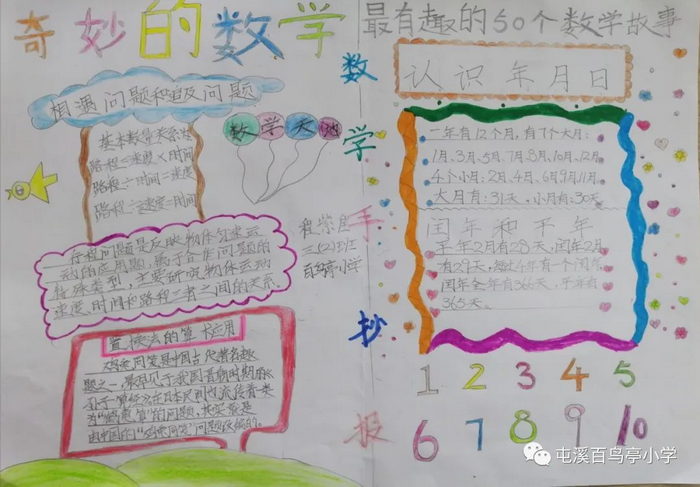 奇妙的数学
相遇问题和追及问题
基本数量关系为
路程=速度×时间
路程÷时间=速度
路程÷速度=时间
数学天地
行程问题是反映物体匀速运
动的应用题,属于合作问题的
特殊类型,主要研究物体运动
速度、时间和路程三者之间的关系.
置换法的算术应用
鸡兔同笼是中国古代著名趣
题之一,
为
问题,其实就是
由中国的"鸡兔同笼"问题
数学手抄报
三(2)班
百鸟亭小学
最有趣的50个数学故事
认识年月日
一年有12个月,有7个大月:
1月、3月、5月、7月、8月、10月、12月
4个小月:2月、4月、6月、9月、11月
大月有:31天,小月有:30天
闰年和平年
平年2月有28天,闰年2月
有29天,每过4年有一个闰年
闰年全年有366天,平年有
365天。
1 2 3 4 5
6 7 8 9 10
屯溪百鸟亭小学